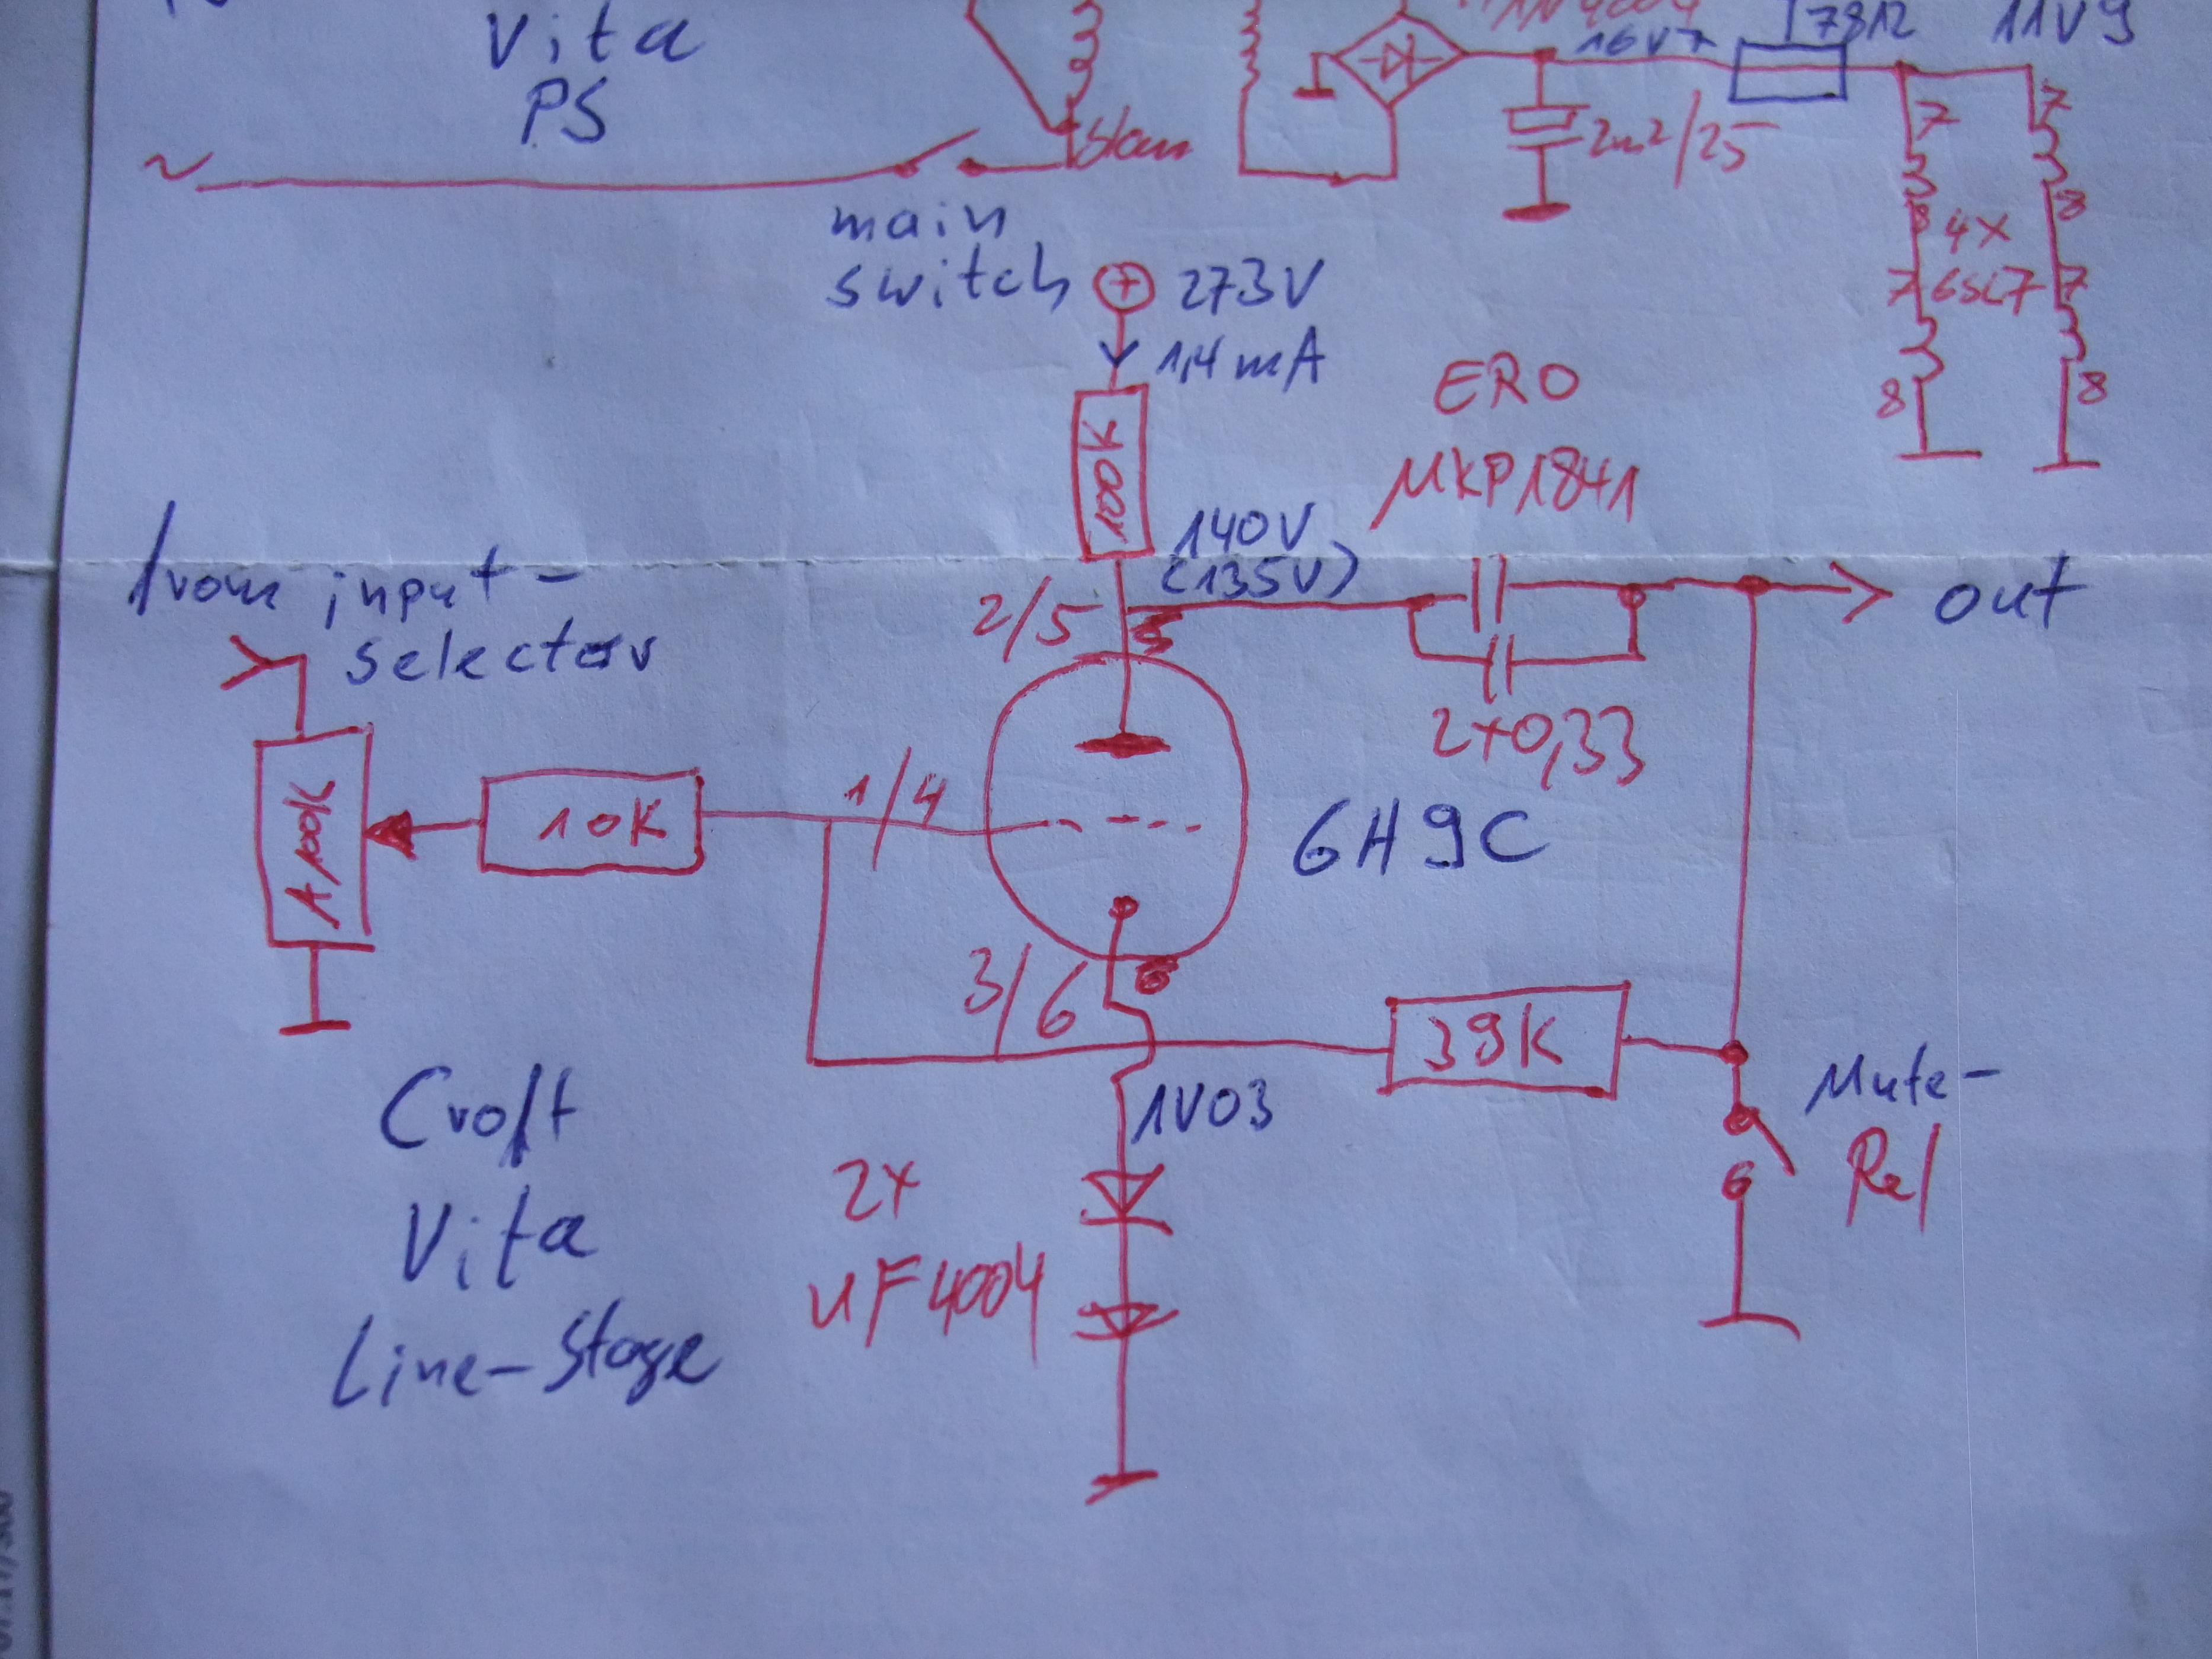 Vita
PS
~
main
switch
1N4004
16V7
7812
11V9
2m2/25
7
7
8
8
4x
6SL7
7
7
8
8
+
273V
1,4mA
100K
ERO
MKP1841
140V
(135V)
2/5
from input-
selector
out
2x0,33
A100K
10K
1/4
6H9C
3/6
39K
1V03
Mute-
Rel
2x
UF4004
Croft
Vita
Line-Stage